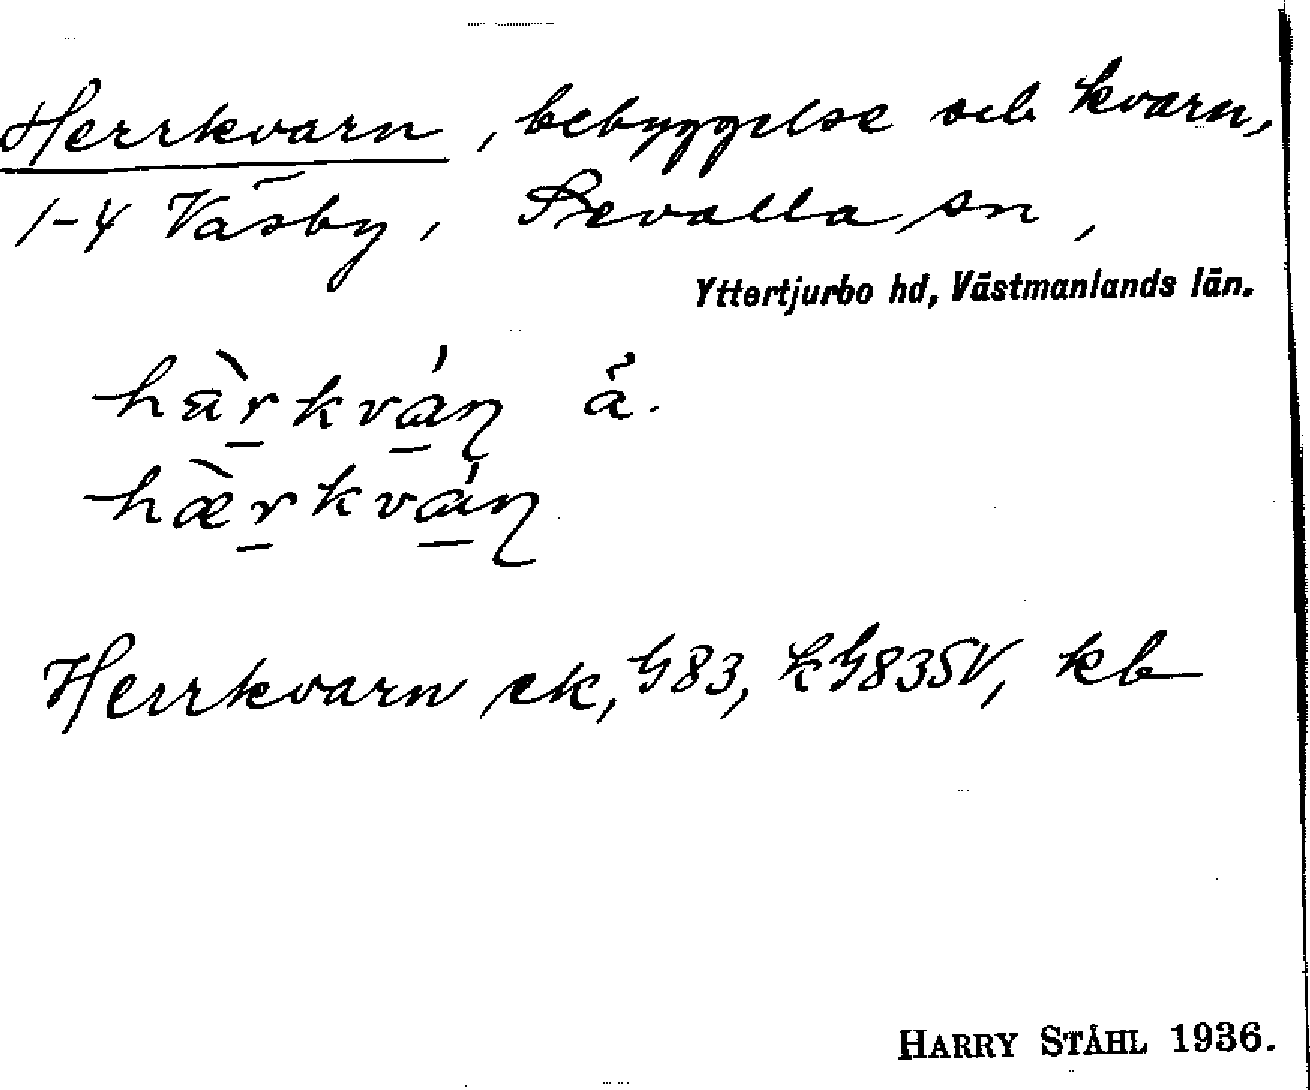 Herrkvarn, bebyggelse och kvarn,
1-4 Väsby, Sevalla sn,
Yttertjurbo hd, Västmanlands län.
hä̀rkváɳ å.
hæ̀rkváɳ
Herrkvarn ek, G83, kG83SV, kb
HARRY STÅHL 1936.